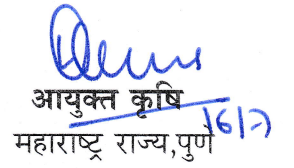 आयुक्त कृषि
महाराष्ट्र राज्य,पुणे